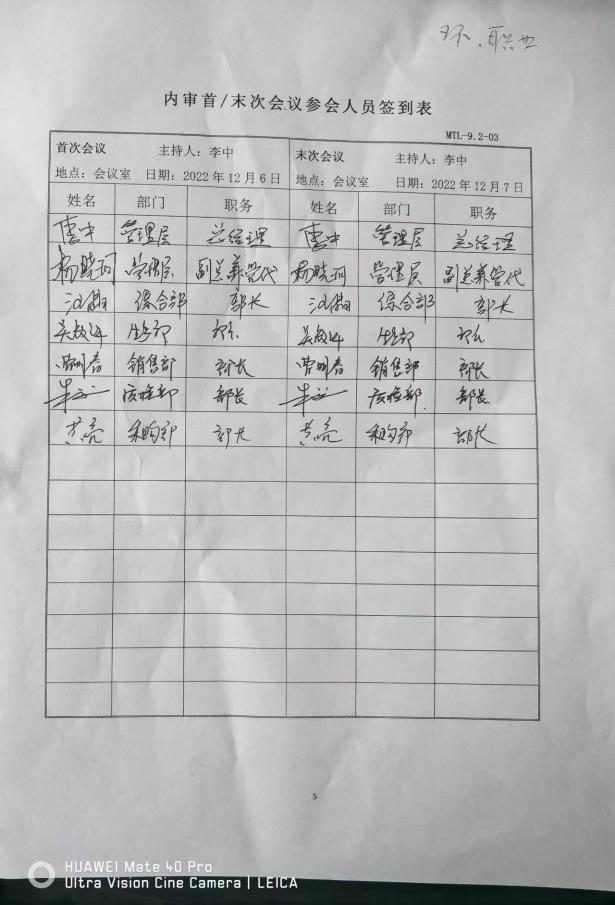 环、职业
内审首/末次会议参会人员签到表
MTL-9.2-03
首次会议 主持人：李中 末次会议 主持人：李中
地点：会议室 日期：2022年12月6日 地点：会议室 日期：2022年12月7日
姓名 部门 职务 姓名 部门 职务
李中 管理层 总经理 李中 管理层 总经理
杨晓珂 管理层 副总兼管代 杨晓珂 管理层 副总兼管代
综合部 部长 综合部 部长
生产部 部长 生产部 部长
销售部 部长 销售部 部长
质检部 部长 质检部 部长
采购部 部长 采购部 部长
5
HUAWEI Mate 40 Pro
Ultra Vision Cine Camera | LEICA